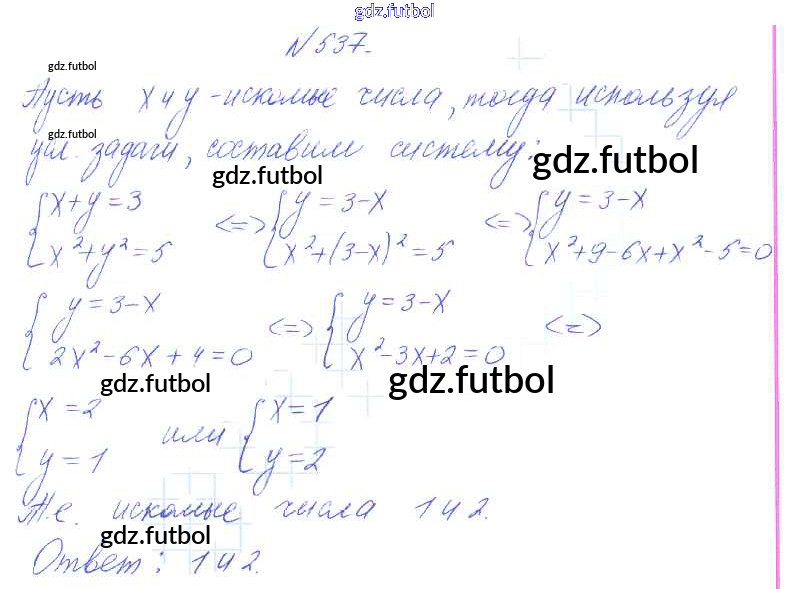 gdz.futbol
N 537.
gdz.futbol
Пусть x и y - искомые числа, тогда используя
gdz.futbol
усл. задачи, составим систему:
gdz.futbol
gdz.futbol
{ x + y = 3 <=> { y = 3 - x <=> { y = 3 - x
{ x² + y² = 5 { x² + (3 - x)² = 5 { x² + 9 - 6x + x² - 5 = 0
{ y = 3 - x <=> { y = 3 - x <=>
{ 2x² - 6x + 4 = 0 { x² - 3x + 2 = 0
gdz.futbol
gdz.futbol
{ x = 2 или { x = 1
{ y = 1 { y = 2
Т.е. искомые числа 1 и 2.
gdz.futbol
Ответ: 1 и 2.